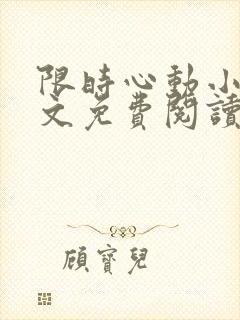 限時心動小
文免費閱讀
顧寶兒